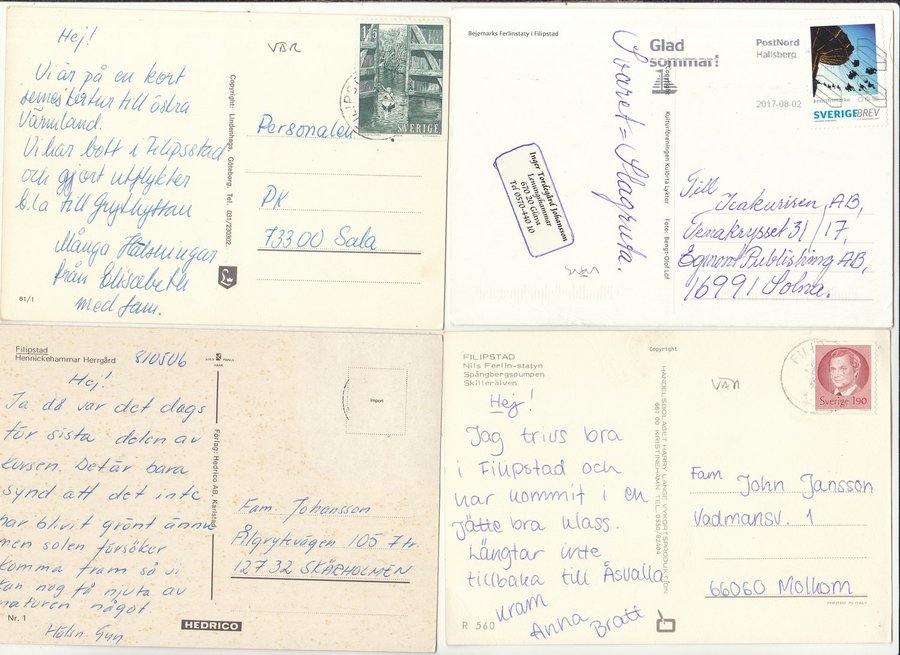 Hej!
VÄR
Vi är på en kort
semestertur till östra
Värmland.
Vi har bott i Filipsstad
och gjort utflykter
bl.a till Grythyttan
Många Hälsningar
från Elisabeth
med fam.
81/1
Copyright: Lindenhags, Göteborg, Tel. 031/230302.
SVERIGE
Personalen
PK
73300 Sala
Bejemarks Ferlinstaty i Filipstad
Glad
sommar!
PostNord
Hallsberg
2017-08-02
SVERIGE BREV
Svaret = Slagruta.
Kulturföreningen Kulörta Lyktor
Foto: Bengt-Olof Löf
Inger Tordegård Johansson
Lenungshammar
670 20 Glava
Tel 0570-440 10
Till
Icakuriren, AB,
Tenakrysset 31/17,
Egmont Publishing AB,
16991 Solna.
Filipstad
Hennickehammar Herrgård
810506
Hej!
Ja då var det dags
för sista delen av
kursen. Det är bara
synd att det inte
har blivit grönt ännu
men solen försöker
komma fram så vi
kan nog få njuta av
naturen något
Hälsn. Gun
Nr. 1
Förlag: Hedrico AB, Karlstad
HEDRICO
Import
Fam. Johansson
Ålgrytevägen 105 7 tr.
127 32 SKÄRHOLMEN
FILIPSTAD
Nils Ferlin-statyn
Spångbergspumpen
Skillerälven
Copyright
HANDELSBOLAGET HARRY LANGE VYKORTSPRODUKTION
681 00 KRISTINEHAMN TELL. 0550/82404
Sverige 190
Hej!
Jag trivs bra
i Filipstad och
har kommit i en
jätte bra klass.
Längtar inte
tillbaka till Åsvalla
Kram
Anna Bratt
R 560
Fam John Jansson
Vadmansv. 1
66060 Molkom
PRINTED IN ITALY